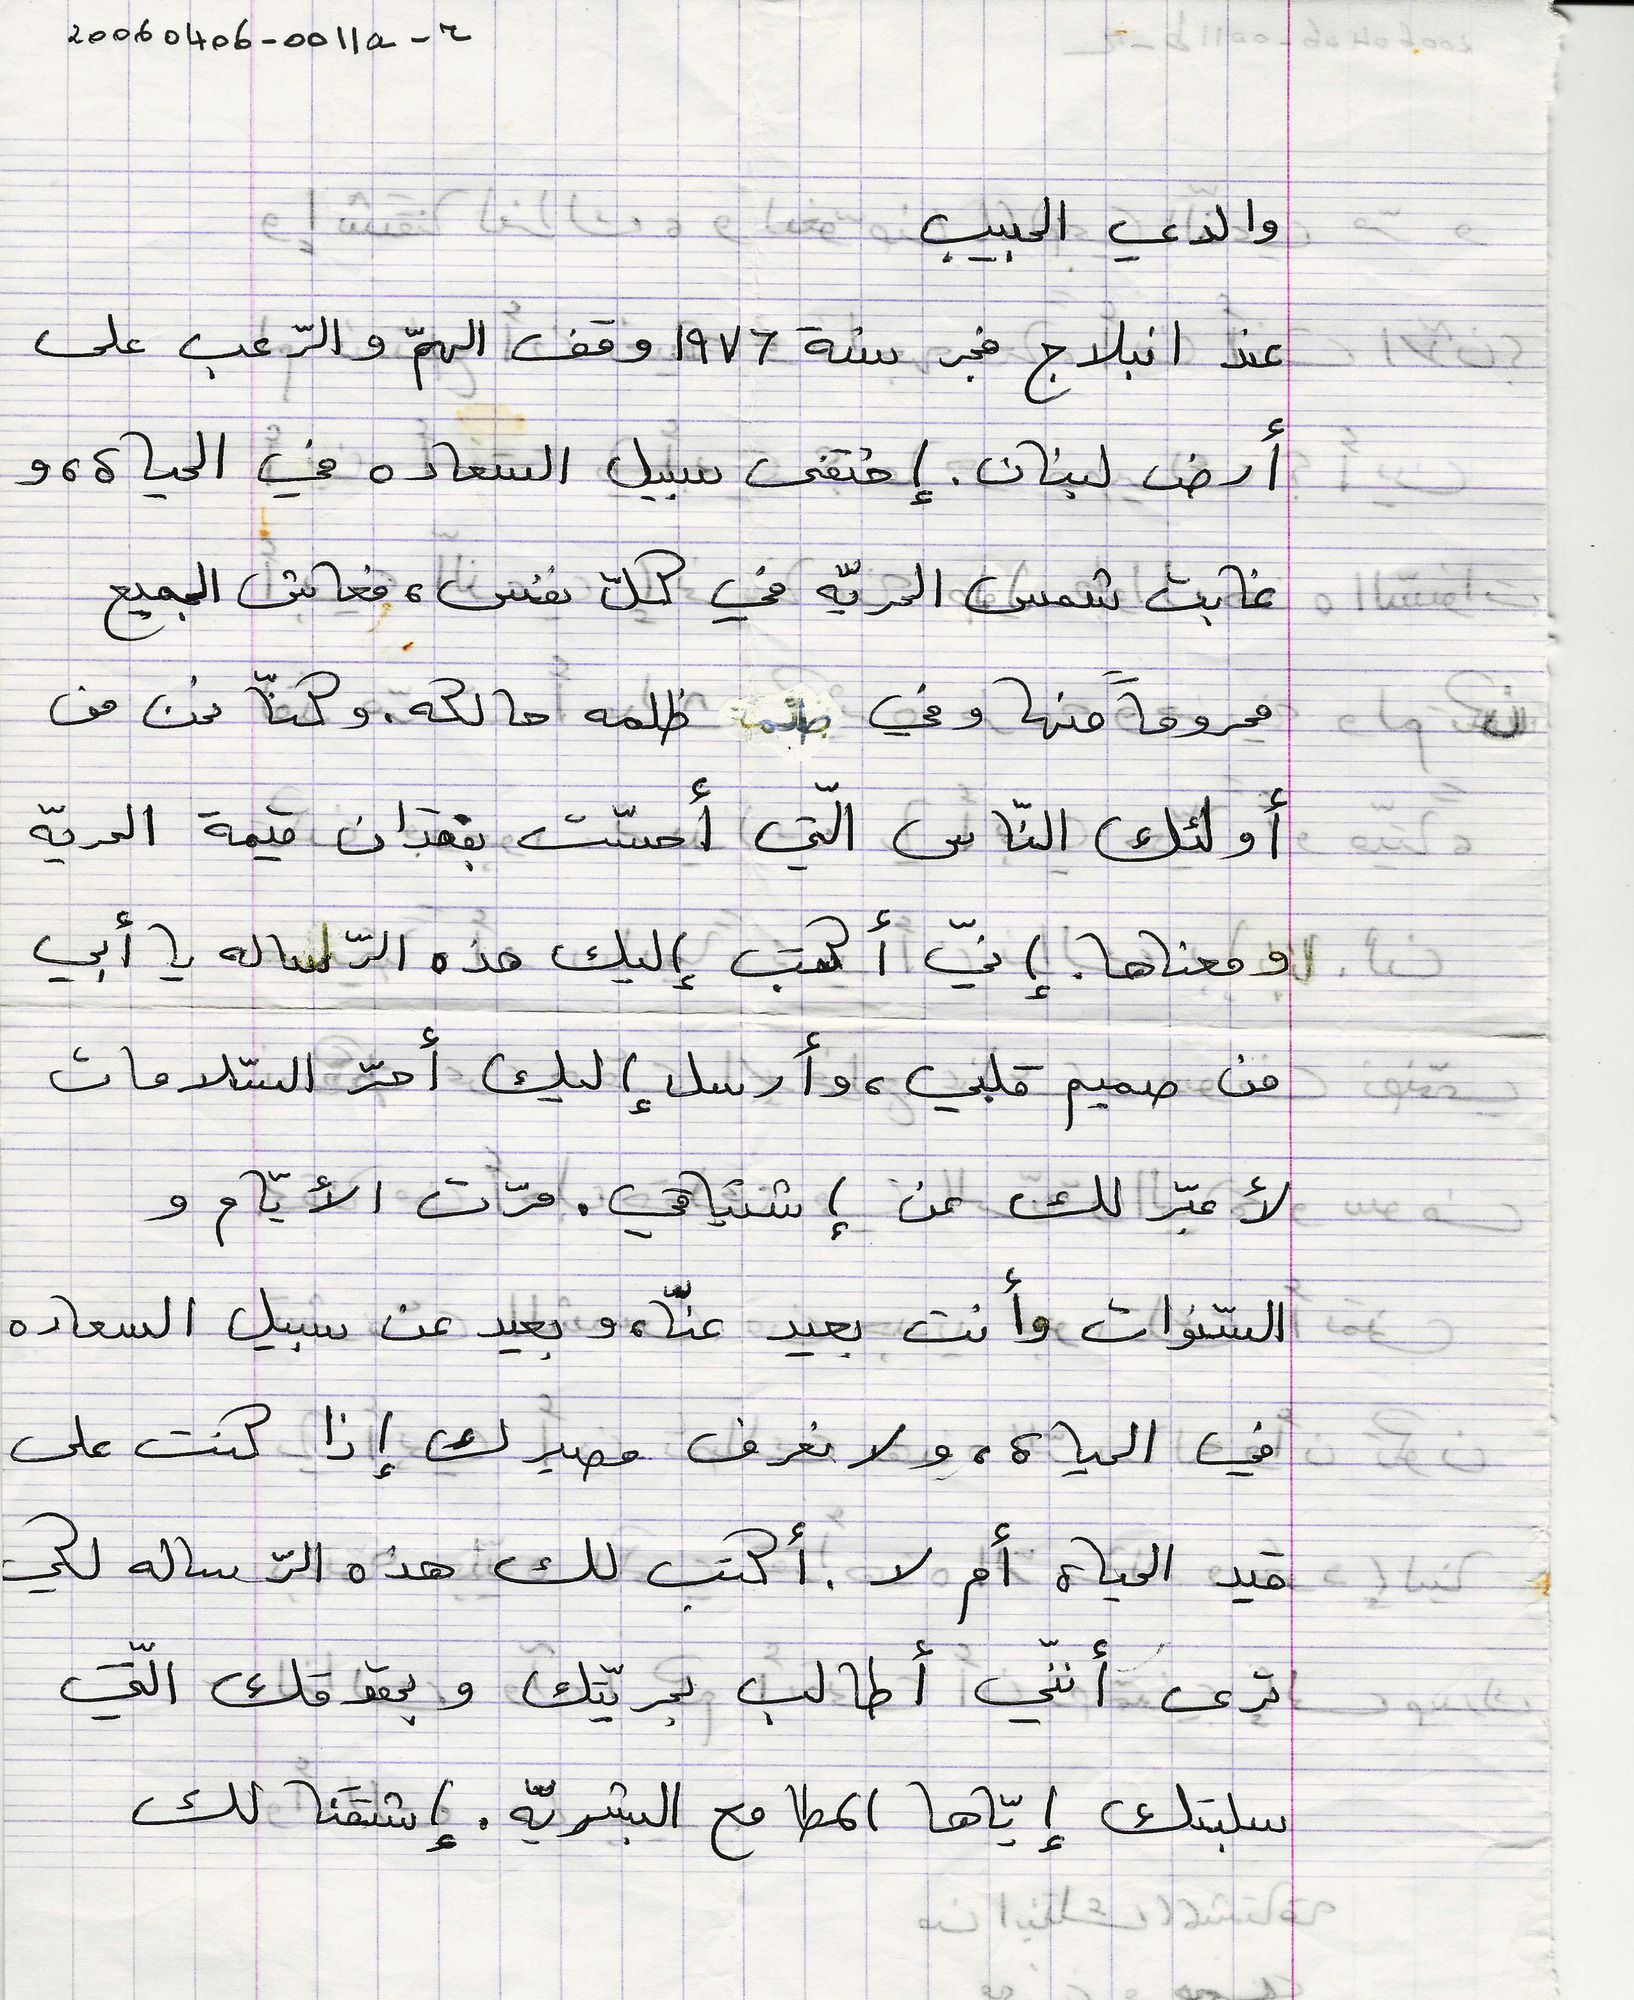 20060406-0011a-r
والدي الحبيب
عند انبلاج فجر سنة ١٩٧٦ وقف الهمّ والرّعب على
أرض لبنان. إختفى سبيل السعاده في الحياة، و
غابت شمس الحريّه في كلّ نفس، فعاش الجميع
محروماً منها وفي ظلمه حالكه. وكنّا نحن من
أولئك النّاس الّتي أحسّت بفقدان قيمة الحريّه
ومعناها. إنيّ أكتب إليك هذه الرّساله يا أبي
من صميم قلبي، وأرسل إليك أحرّ السّلامات
لأعبّر لك عن إشتياقي. مرّت الأيّام و
السّنوات وأنت بعيد عنّا، و بعيد عن سبيل السعاده
في الحياة، ولا نعرف مصيرك إذا كنت على
قيد الحياة أم لا. أكتب لك هذه الرّساله لكي
ترى أننّي أطالب بحريّتك و بحقوقك الّتي
سلبتك إيّاها المطامع البشريّه. إشتقنا لك